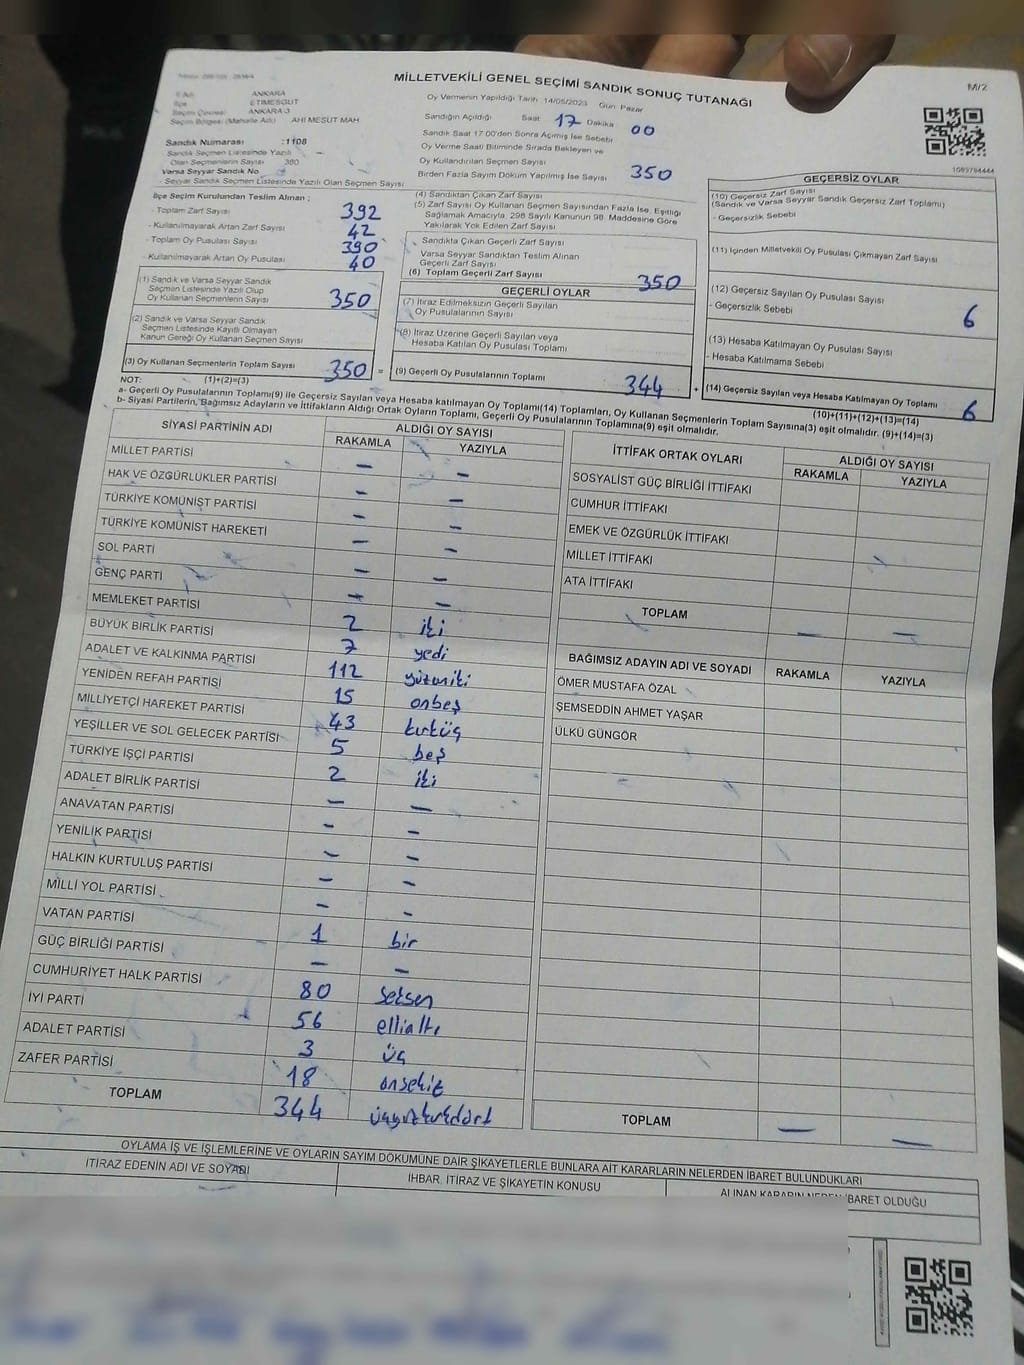 MİLLETVEKİLİ GENEL SEÇİMİ SANDIK SONUÇ TUTANAĞI
M/2
İli Adı ANKARA
İlçe ETİMESGUT
Seçim Çevresi ANKARA 3
Seçim Bölgesi (Mahalle Adı) AHİ MESUT MAH.
Sandık Numarası :1108
Sandık Seçmen Listesinde Yazılı
Olan Seçmenlerin Sayısı 380
Varsa Seyyar Sandık No
- Seyyar Sandık Seçmen Listesinde Yazılı Olan Seçmen Sayısı
Oy Vermenin Yapıldığı Tarih 14/05/2023 Gün Pazar
Sandığın Açıldığı Saat 17 Dakika 00
Sandık Saat 17.00'den Sonra Açılmış İse Sebebi
Oy Verme Saati Bitiminde Sırada Bekleyen ve
Oy Kullandırılan Seçmen Sayısı
Birden Fazla Sayım Döküm Yapılmış İse Sayısı 350
1083794444
İlçe Seçim Kurulundan Teslim Alınan ;
- Toplam Zarf Sayısı 392
- Kullanılmayarak Artan Zarf Sayısı 42
- Toplam Oy Pusulası Sayısı 390
- Kullanılmayarak Artan Oy Pusulası 40
(1) Sandık ve Varsa Seyyar Sandık
Seçmen Listesinde Yazılı Olup
Oy Kullanan Seçmenlerin Sayısı 350
(2) Sandık ve Varsa Seyyar Sandık
Seçmen Listesinde Kayıtlı Olmayan
Kanun Gereği Oy Kullanan Seçmen Sayısı
(3) Oy Kullanan Seçmenlerin Toplam Sayısı 350 =
(1)+(2)=(3)
(4) Sandıktan Çıkan Zarf Sayısı
(5) Zarf Sayısı Oy Kullanan Seçmen Sayısından Fazla İse, Eşitliği
Sağlamak Amacıyla, 298 Sayılı Kanunun 98. Maddesine Göre
Yakılarak Yok Edilen Zarf Sayısı
Sandıkta Çıkan Geçerli Zarf Sayısı
Varsa Seyyar Sandıktan Teslim Alınan
Geçerli Zarf Sayısı
(6) Toplam Geçerli Zarf Sayısı 350
GEÇERLİ OYLAR
(7) İtiraz Edilmeksizin Geçerli Sayılan
Oy Pusulalarının Sayısı
(8) İtiraz Üzerine Geçerli Sayılan veya
Hesaba Katılan Oy Pusulası Toplamı
(9) Geçerli Oy Pusulalarının Toplamı 344 +
GEÇERSİZ OYLAR
(10) Geçersiz Zarf Sayısı
(Sandık ve Varsa Seyyar Sandık Geçersiz Zarf Toplamı)
- Geçersizlik Sebebi
(11) İçinden Milletvekili Oy Pusulası Çıkmayan Zarf Sayısı
(12) Geçersiz Sayılan Oy Pusulası Sayısı
- Geçersizlik Sebebi 6
(13) Hesaba Katılmayan Oy Pusulası Sayısı
- Hesaba Katılmama Sebebi
(14) Geçersiz Sayılan veya Hesaba Katılmayan Oy Toplamı 6
(10)+(11)+(12)+(13)=(14)
NOT:
a- Geçerli Oy Pusulalarının Toplamı(9) ile Geçersiz Sayılan veya Hesaba katılmayan Oy Toplamı(14) Toplamları, Oy Kullanan Seçmenlerin Toplam Sayısına(3) eşit olmalıdır. (9)+(14)=(3)
b- Siyasi Partilerin, Bağımsız Adayların ve İttifakların Aldığı Ortak Oyların Toplamı, Geçerli Oy Pusulalarının Toplamına(9) eşit olmalıdır.
SİYASİ PARTİNİN ADI ALDIĞI OY SAYISI
RAKAMLA YAZIYLA
MİLLET PARTİSİ — —
HAK VE ÖZGÜRLÜKLER PARTİSİ — —
TÜRKİYE KOMÜNİST PARTİSİ — —
TÜRKİYE KOMÜNİST HAREKETİ — —
SOL PARTİ — —
GENÇ PARTİ — —
MEMLEKET PARTİSİ 2 iki
BÜYÜK BİRLİK PARTİSİ 7 yedi
ADALET VE KALKINMA PARTİSİ 112 yüzoniki
YENİDEN REFAH PARTİSİ 15 onbeş
MİLLİYETÇİ HAREKET PARTİSİ 43 kırküç
YEŞİLLER VE SOL GELECEK PARTİSİ 5 beş
TÜRKİYE İŞÇİ PARTİSİ 2 iki
ADALET BİRLİK PARTİSİ — —
ANAVATAN PARTİSİ — —
YENİLİK PARTİSİ — —
HALKIN KURTULUŞ PARTİSİ — —
MİLLİ YOL PARTİSİ — —
VATAN PARTİSİ 1 bir
GÜÇ BİRLİĞİ PARTİSİ — —
CUMHURİYET HALK PARTİSİ 80 seksen
İYİ PARTİ 56 ellialtı
ADALET PARTİSİ 3 üç
ZAFER PARTİSİ 18 onsekiz
TOPLAM 344 üçyüzkırkdört
İTTİFAK ORTAK OYLARI ALDIĞI OY SAYISI
RAKAMLA YAZIYLA
SOSYALİST GÜÇ BİRLİĞİ İTTİFAKI
CUMHUR İTTİFAKI
EMEK VE ÖZGÜRLÜK İTTİFAKI
MİLLET İTTİFAKI
ATA İTTİFAKI
TOPLAM — —
BAĞIMSIZ ADAYIN ADI VE SOYADI RAKAMLA YAZIYLA
ÖMER MUSTAFA ÖZAL
ŞEMSEDDİN AHMET YAŞAR
ÜLKÜ GÜNGÖR
TOPLAM — —
OYLAMA İŞ VE İŞLEMLERİNE VE OYLARIN SAYIM DÖKÜMÜNE DAİR ŞİKAYETLERLE BUNLARA AİT KARARLARIN NELERDEN İBARET BULUNDUKLARI
İTİRAZ EDENİN ADI VE SOYADI
İHBAR, İTİRAZ VE ŞİKAYETİN KONUSU
ALINAN KARARIN NEDEN İBARET OLDUĞU